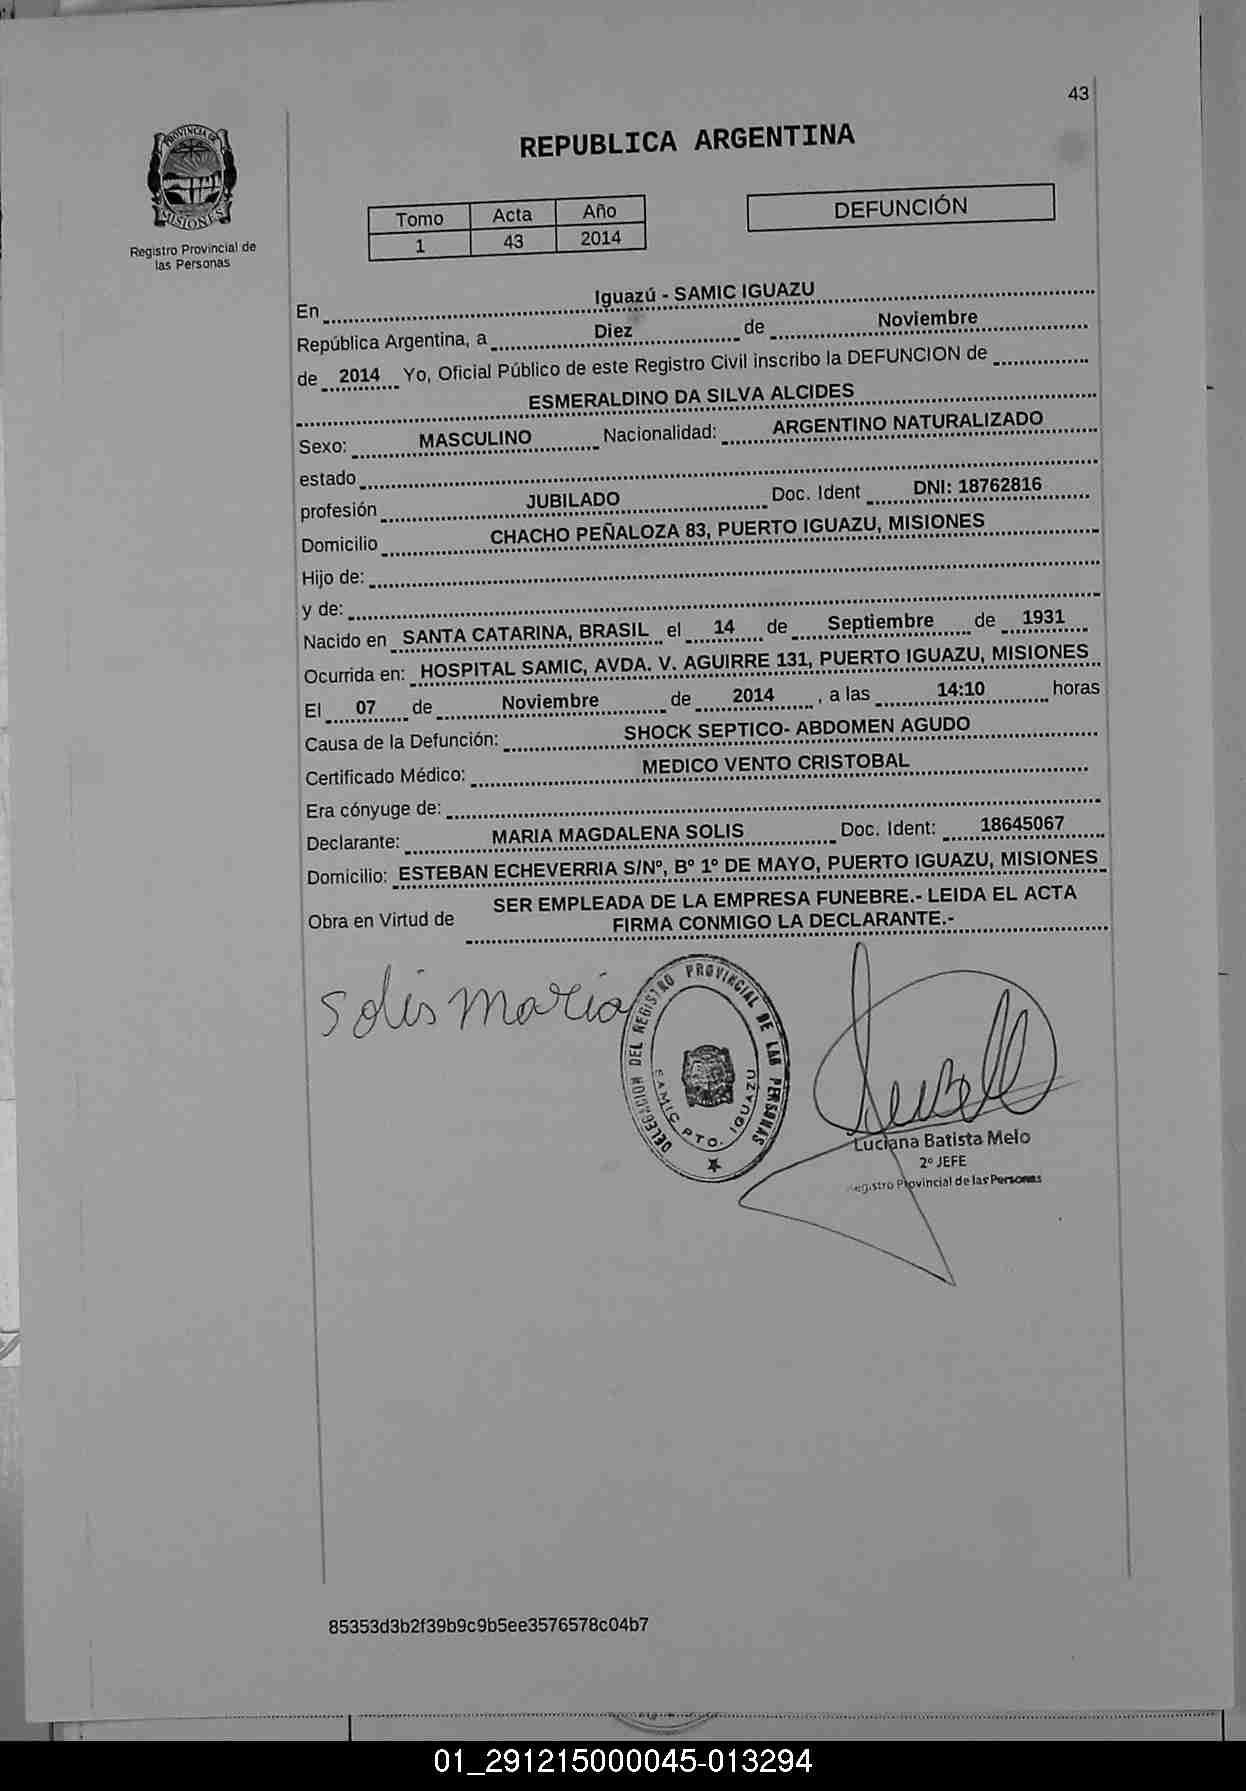 43
PROVINCIA DE
MISIONES
Registro Provincial de
las Personas
REPUBLICA ARGENTINA
Tomo Acta Año
1 43 2014
DEFUNCIÓN
En Iguazú - SAMIC IGUAZU
República Argentina, a Diez de Noviembre
de 2014 Yo, Oficial Público de este Registro Civil inscribo la DEFUNCION de
ESMERALDINO DA SILVA ALCIDES
Sexo: MASCULINO Nacionalidad: ARGENTINO NATURALIZADO
estado
profesión JUBILADO Doc. Ident DNI: 18762816
Domicilio CHACHO PEÑALOZA 83, PUERTO IGUAZU, MISIONES
Hijo de:
y de:
Nacido en SANTA CATARINA, BRASIL el 14 de Septiembre de 1931
Ocurrida en: HOSPITAL SAMIC, AVDA. V. AGUIRRE 131, PUERTO IGUAZU, MISIONES
El 07 de Noviembre de 2014 , a las 14:10 horas
Causa de la Defunción: SHOCK SEPTICO- ABDOMEN AGUDO
Certificado Médico: MEDICO VENTO CRISTOBAL
Era cónyuge de:
Declarante: MARIA MAGDALENA SOLIS Doc. Ident: 18645067
Domicilio: ESTEBAN ECHEVERRIA S/Nº, Bº 1º DE MAYO, PUERTO IGUAZU, MISIONES
Obra en Virtud de SER EMPLEADA DE LA EMPRESA FUNEBRE.- LEIDA EL ACTA
FIRMA CONMIGO LA DECLARANTE.-
Solis Maria
DELEGACION DEL REGISTRO PROVINCIAL DE LAS PERSONAS
SAMIC PTO. IGUAZU
Luciana Batista Melo
2º JEFE
Registro Provincial de las Personas
85353d3b2f39b9c9b5ee3576578c04b7
01_291215000045-013294